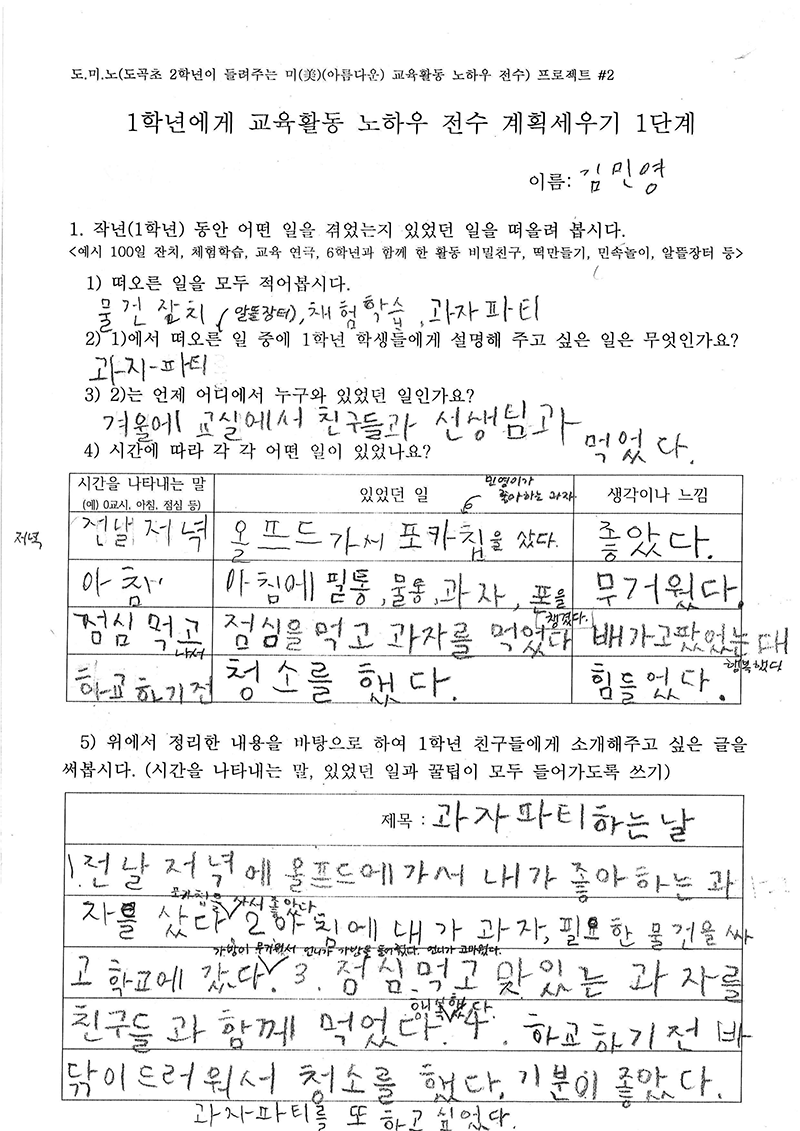 도.미.노(도곡초 2학년이 들려주는 미(美)(아름다운) 교육활동 노하우 전수) 프로젝트 #2
1학년에게 교육활동 노하우 전수 계획세우기 1단계
이름: 김민영
1. 작년(1학년) 동안 어떤 일을 겪었는지 있었던 일을 떠올려 봅시다.
<예시 100일 잔치, 체험학습, 교육 연극, 6학년과 함께 한 활동 비밀친구, 떡만들기, 민속놀이, 알뜰장터 등>
1) 떠오른 일을 모두 적어봅시다.
물건 잠치 (알뜰장터), 채험학습, 과자파티
2) 1)에서 떠오른 일 중에 1학년 학생들에게 설명해 주고 싶은 일은 무엇인가요?
과자파티
3) 2)는 언제 어디에서 누구와 있었던 일인가요?
겨울에 교실에서 친구들과 선생님과 먹었다.
4) 시간에 따라 각 각 어떤 일이 있었나요?
시간을 나타내는 말 있었던 일 생각이나 느낌
(예) 0교시, 아침, 점심 등)
민영이가
좋아하는 과자
저녁
전날 저녁 올프드 가서 포카칩을 샀다. 좋았다.
아침 아침에 필통, 물통, 과자, 폰을 챙겼다. 무거웠다.
점심 먹고 나서 점심을 먹고 과자를 먹었다 배가고팠었는대 행복했다
하교하기전 청소를 했다. 힘들었다.
5) 위에서 정리한 내용을 바탕으로 하여 1학년 친구들에게 소개해주고 싶은 글을
써봅시다. (시간을 나타내는 말, 있었던 일과 꿀팁이 모두 들어가도록 쓰기)
제목 : 과자파티하는날
1. 전날 저녁에 올프드에가서 내가 좋아하는 과
포카칩을 사서 좋았다.
자를 샀다 2 아침에 내가 과자, 필요한 물건을 싸
가방이 무거워서 언니가 가방을 들어줬다. 언니가 고마웠다.
고 학교에 갔다. 3. 점심먹고 맛있는 과자를
행복했다.
친구들과 함께 먹었다. 4. 하교하기전 바
닦이드러워서 청소를 했다. 기분이 좋았다.
과자파티를 또 하고 싶었다.